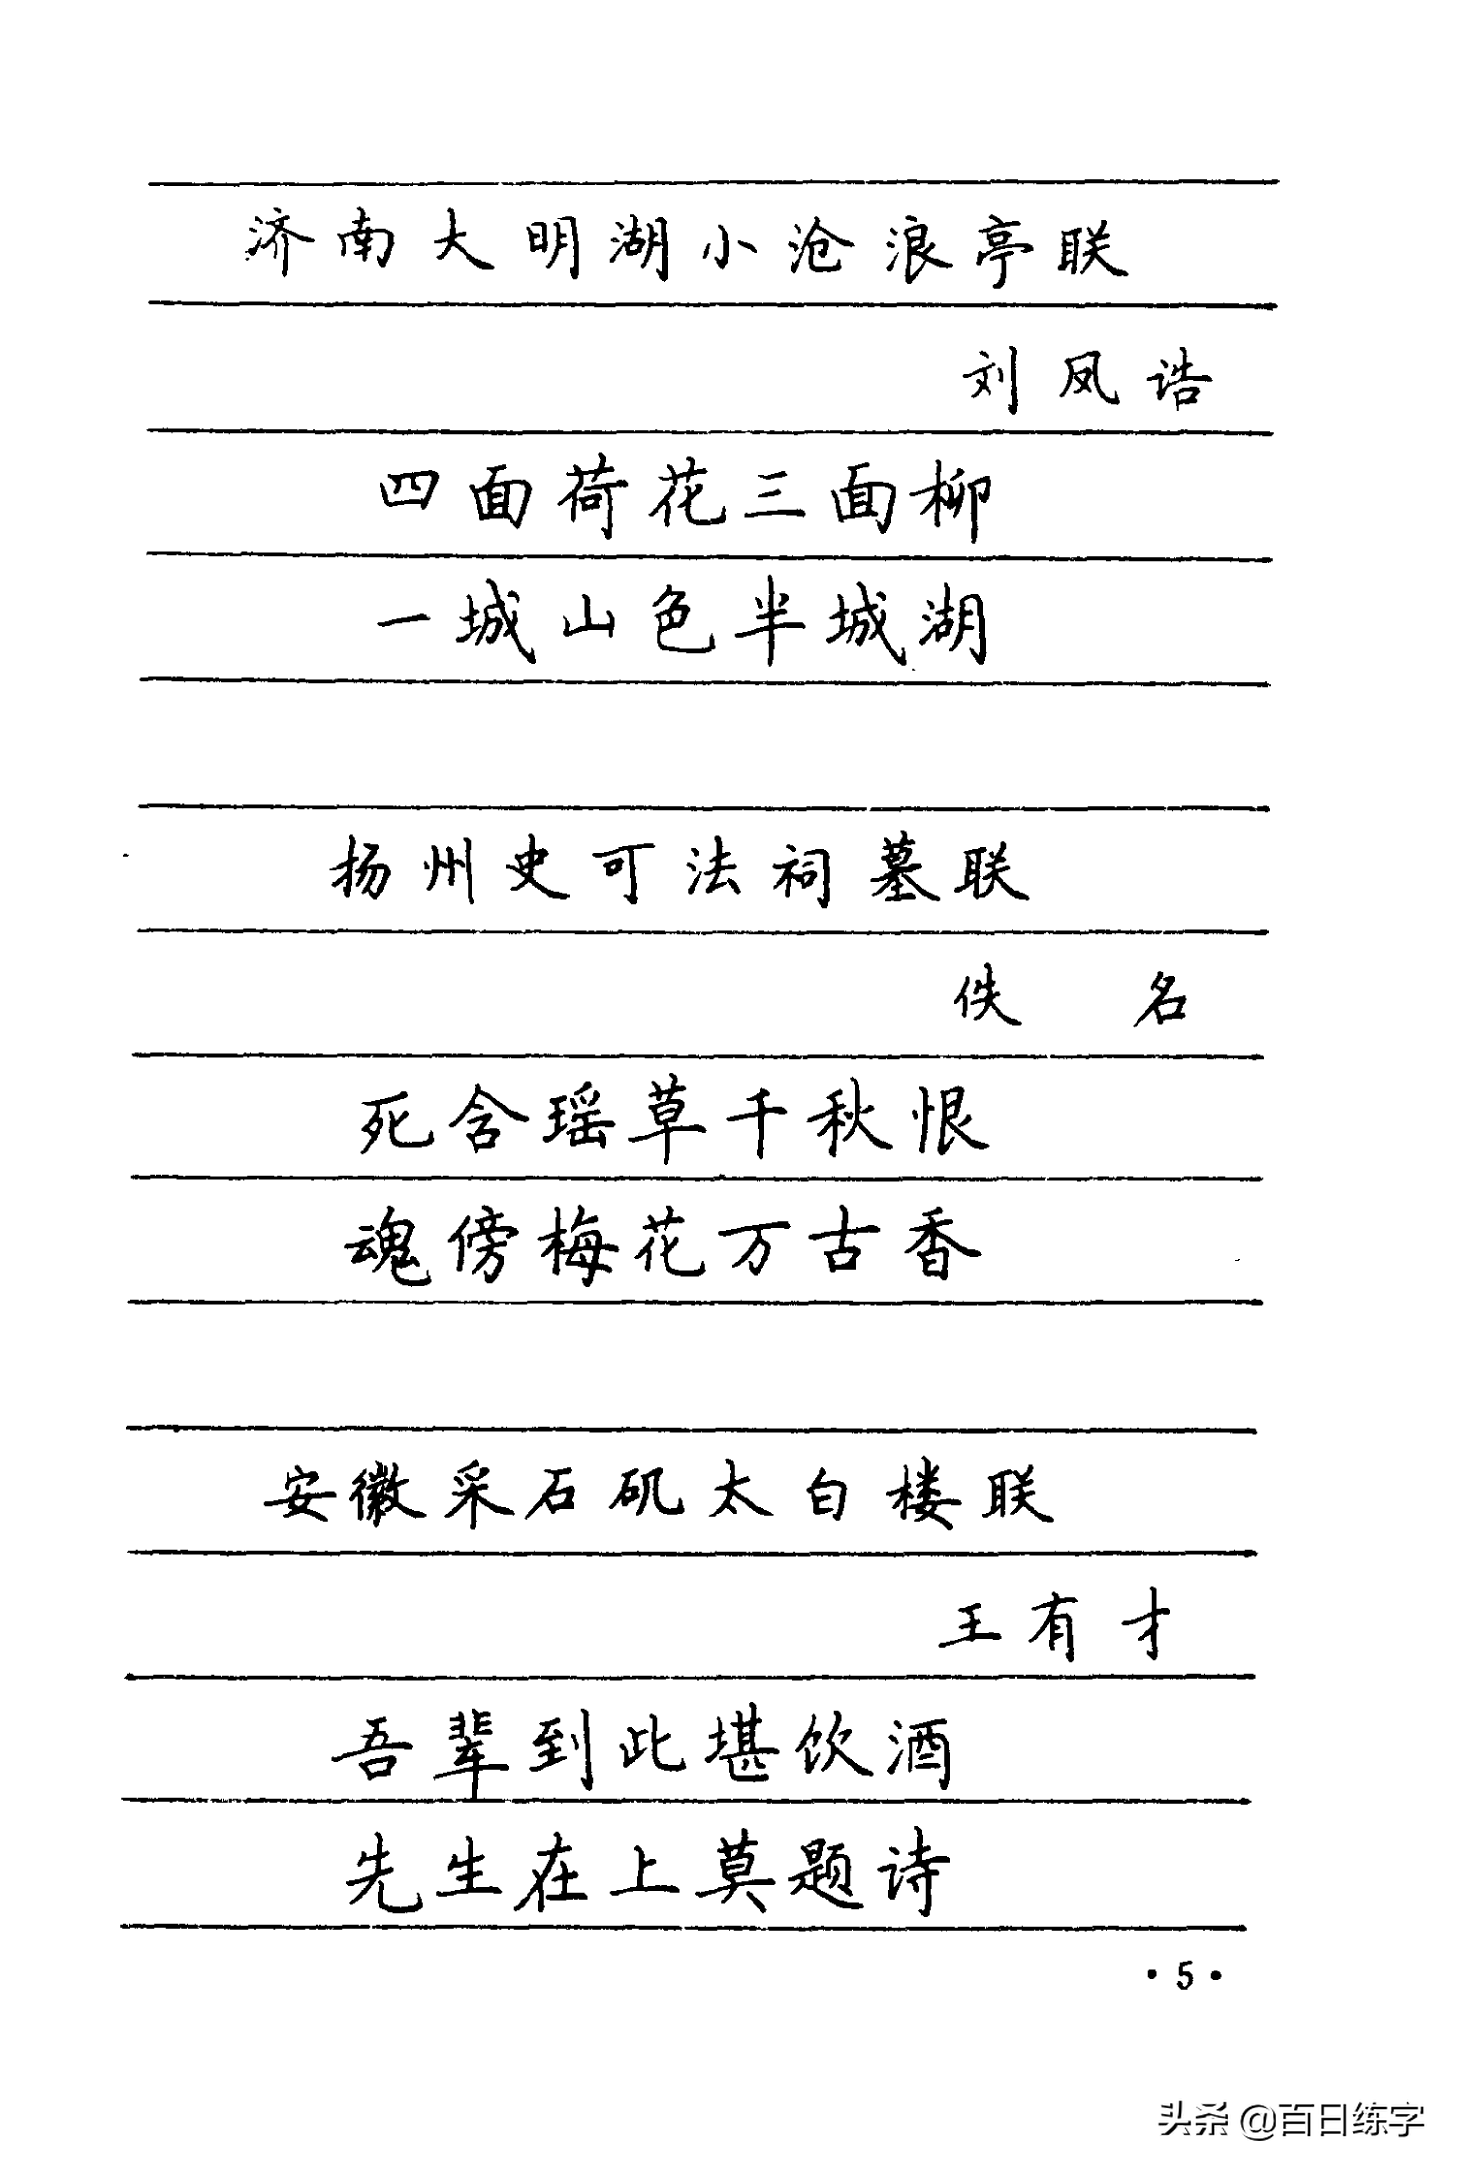 济南大明湖小沧浪亭联
刘凤诰
四面荷花三面柳
一城山色半城湖
扬州史可法祠墓联
佚 名
死含瑶草千秋恨
魂傍梅花万古香
安徽采石矶太白楼联
王有才
吾辈到此堪饮酒
先生在上莫题诗
·5·
头条 @百日练字